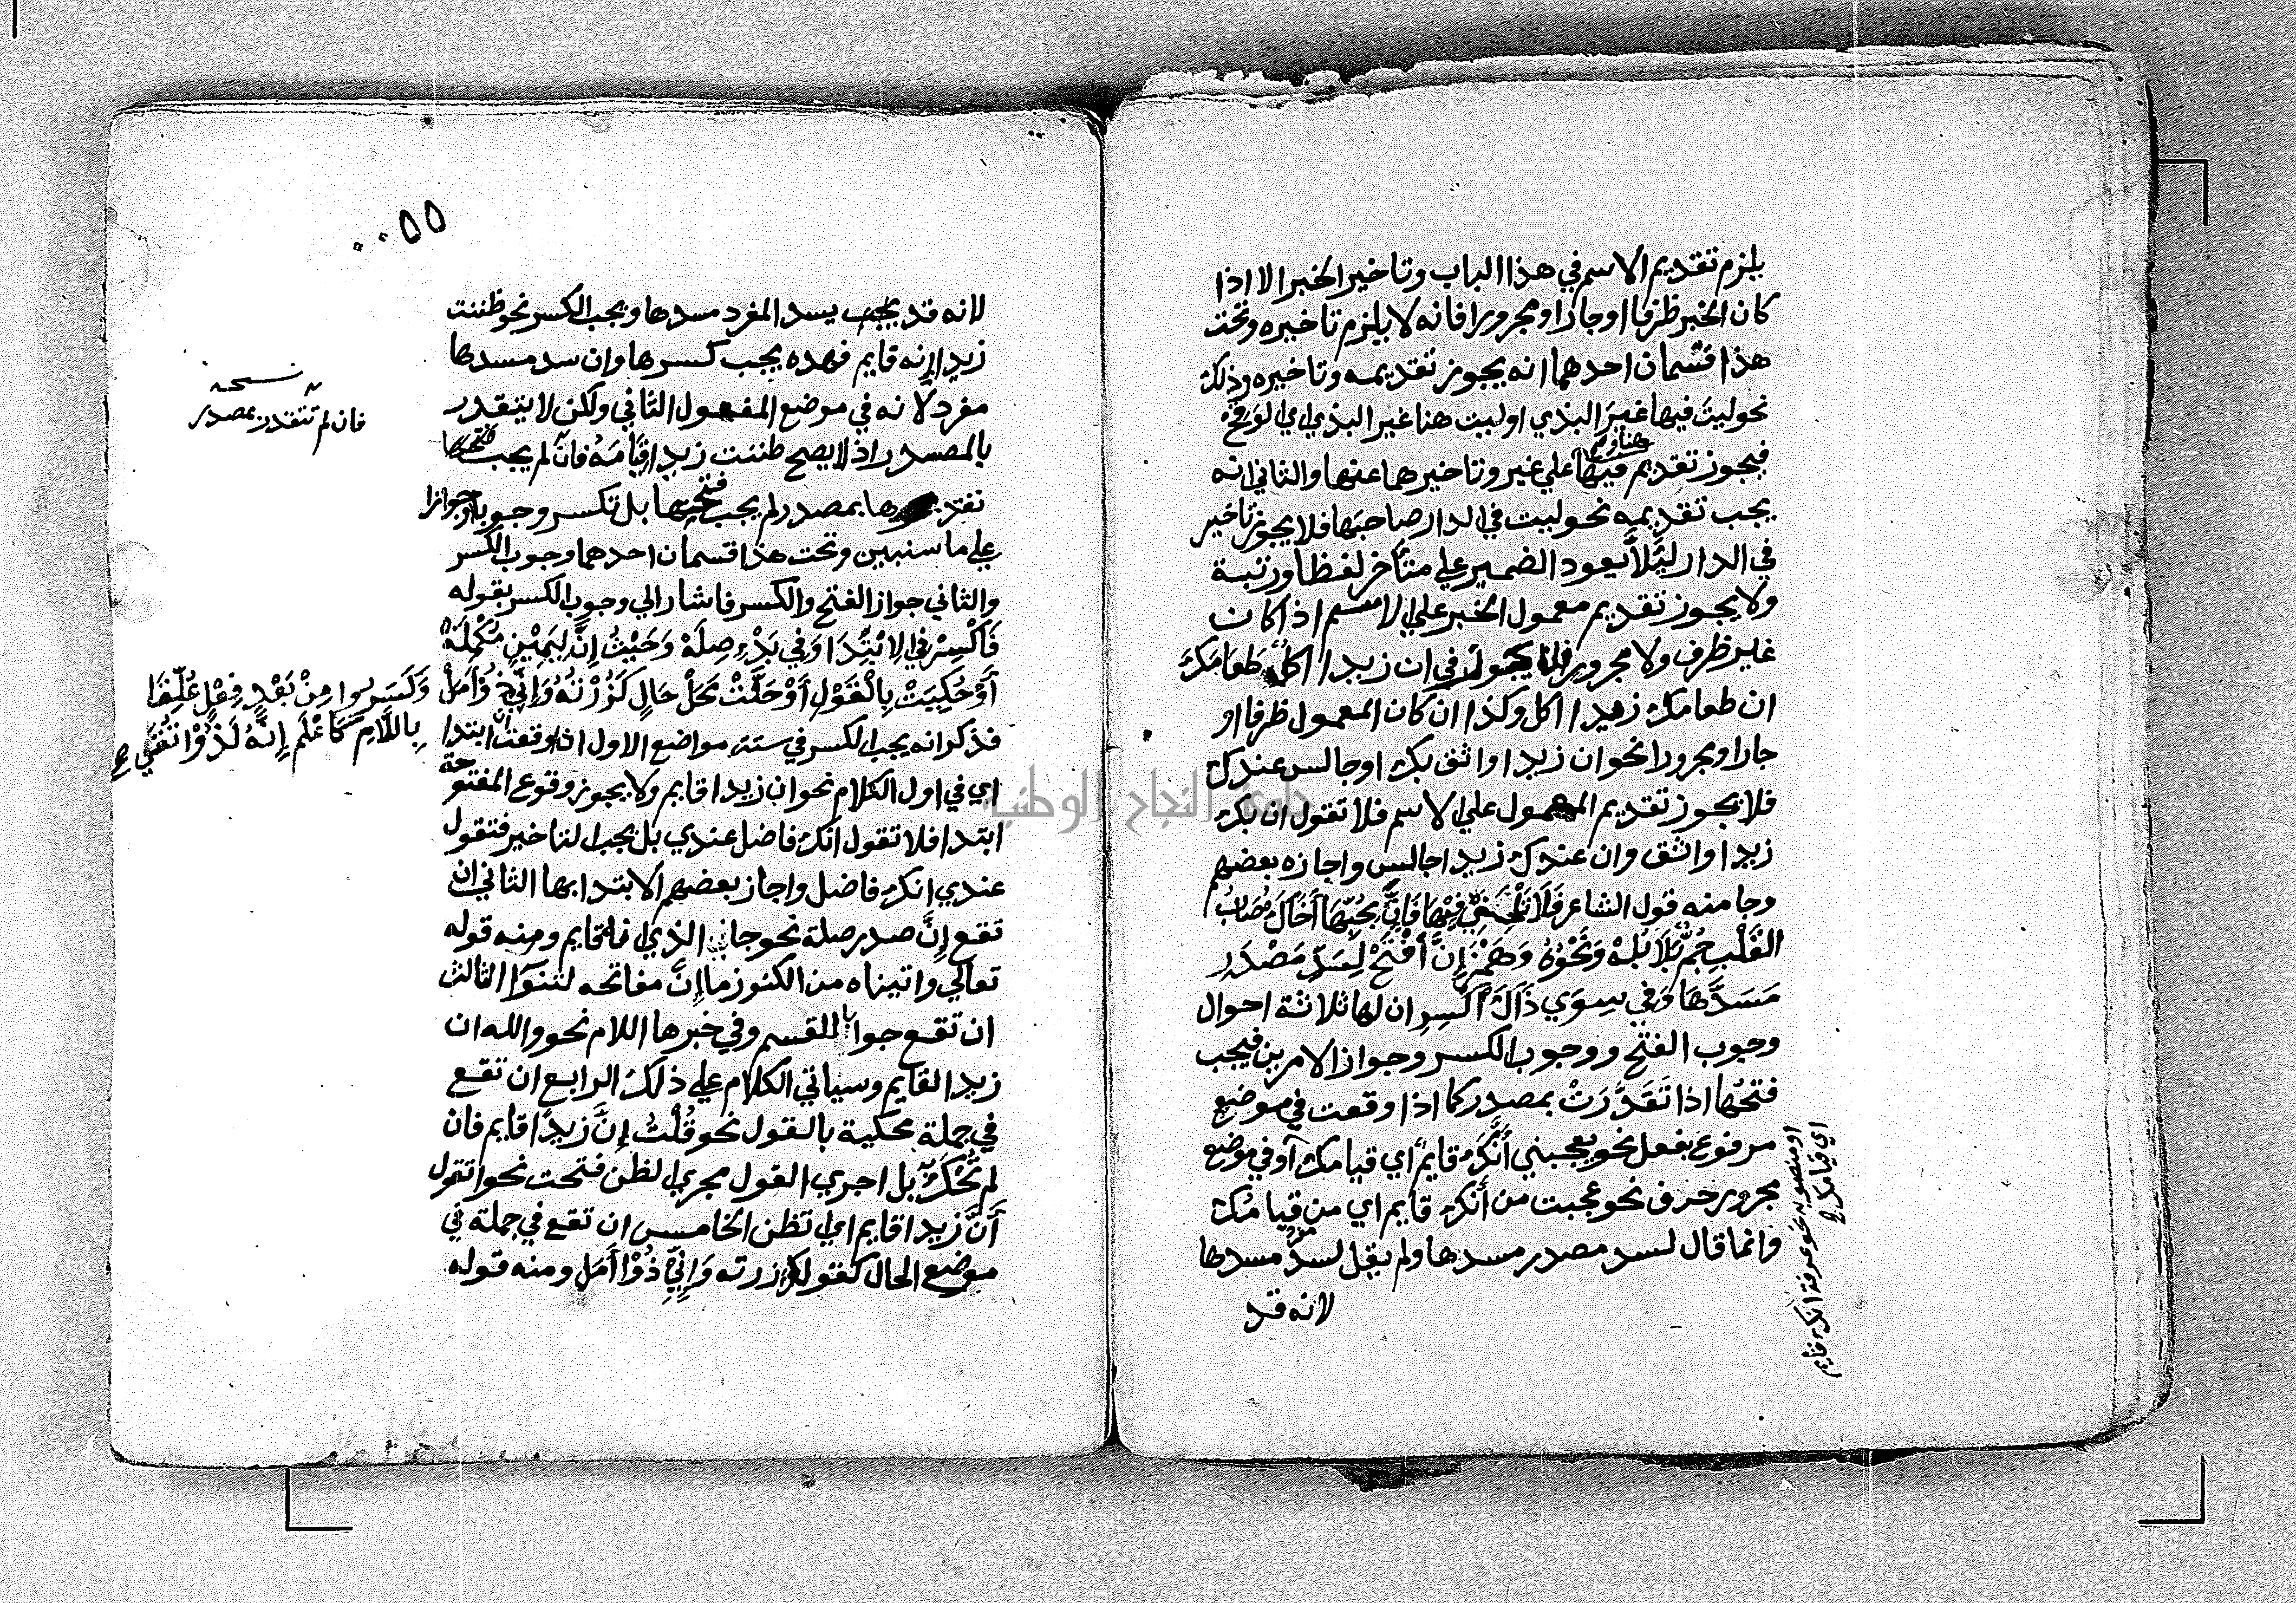 يلزم تقديم الاسم في هذا الباب وتاخير الخبر الا اذا
كان الخبر ظرفا او جارا ومجرورا فانه لا يلزم تاخيره وتحت
هذا قسمان احدهما انه يجوز تقديمه وتاخيره وذلك
نحو ليت فيها غير البذي او ليت هنا غير البذي اي الوقح
فيجوز تقديم فيها وهنا علي غير وتاخيرهما عنها والثاني انه
يجب تقديمه نحو ليت في الدار صاحبها فلا يجوز تاخير
في الدار ليلا يعود الضمير علي متاخر لفظا ورتبة
ولا يجوز تقديم معمول الخبر علي الاسم اذا كان
غير ظرف ولا مجرور فلا يجوز في ان زيدا اكل طعامك
ان طعامك زيدا اكل وكذا ان كان المعمول ظرفا او
جارا ومجرورا نحو ان زيدا واثق بك او جالس عندك
فلا يجوز تقديم المعمول علي الاسم فلا تقول ان بك
زيدا واثق وان عندك زيدا جالس واجازه بعضهم
وجا منه قول الشاعر فَلَا تَلْحَنِي فِيهَا فَإِنَّ بِحُبِّهَا أَخَاكَ مُصَابُ
القَلْبِ جُمٌّ بَلَابِلُهْ وَنَحْوُهُ وَهَمْزَ إِنَّ أَفْتَحْ لِسَدِّ مَصْدَرِ
مَسَدَّهَا وَفِي سِوَي ذَاكَ اكْسِرِ ان لها ثلاثة احوال
وجوب الفتح ووجوب الكسر وجواز الامرين فيجب
فتحها اذا تَقَدَّرَتْ بمصدر كما اذا وقعت في موضع
مرفوع بفعل نحو يعجبني أَنَّكَ قايم اي قيامك او في موضع
مجرور حرف نحو عجبت من أنك قايم اي من قيامك
وانما قال لسد مصدر مسدها ولم يقل لسد مفرد مسدها
لانه قد
او منصوبه نحو عرفت انك قايم
اي قيامك صح
٥٥
لانه قد يجب يسد المفرد مسدها ويجب الكسر نحو ظننت
زيدا إنه قايم فهده يجب كسرها وان سد مسدها
مفرد لانه في موضع المفعول الثاني ولكن لا يتقدر
بالمصدر اذ لا يصح ظننت زيدا قِيَامَهُ فان لم يجب فتحها
تقديرها بمصدر لم يجب فتحها بل تكسر وجوبا او جوازا
علي ما سنبين وتحت هذا قسمان احدهما وجوب الكسر
والثاني جواز الفتح والكسر فاشار الي وجوب الكسر بقوله
فَاكْسِرْ فِي الِابْتِدَا وَفِي بَدْءِ صِلَهْ وَحَيْثُ إِنَّ لِيَمِينٍ مُكْمِلَهْ
أَوْ حُكِيَتْ بِالْقَوْلِ أَوْ حَلَّتْ مَحَلْ حَالٍ كَزُرْتُهُ وَإِنِّي ذُوْ أَمَلْ
فذكر انه يجب الكسر في ستة مواضع الاول اذا وقعت ان ابتدا
اي في اول الكلام نحو ان زيدا قايم ولا يجوز وقوع المفتوحة
ابتدا فلا تقول أنك فاضل عندي بل يجب التاخير فتقول
عندي انك فاضل واجاز بعضهم الابتدا بها الثاني ان
تقع إنَّ صدر صلة نحو جاني الذي انه قايم ومنه قوله
تعالي واتيناه من الكنوز ما إنَّ مفاتحه لتنوا الثالث
ان تقع جوابا للقسم وفي خبرها اللام نحو والله ان
زيدا لقايم وسياتي الكلام علي ذلك الرابع ان تقع
في جملة محكية بالقول نحو قُلْتُ إنَّ زيدًا قايم فان
لم تحك به بل اجري القول مجري الظن فتحت نحو اتقول
أَنَّ زيدا قايم اي اتظن الخامس ان تقع في جملة في
موضع الحال كقولك زرته وَإِنِّي ذُوْ أَمَلِ ومنه قوله
نسخة
فان لم تتقدر بمصدر
وَكَسَرُوا مِنْ بَعْدِ فِعْلٍ عُلِّقَا
بِاللَّامِ كَاعْلَم إِنَّهُ لَذُوْ تُقَي صح
جامعة النجاح الوطنية